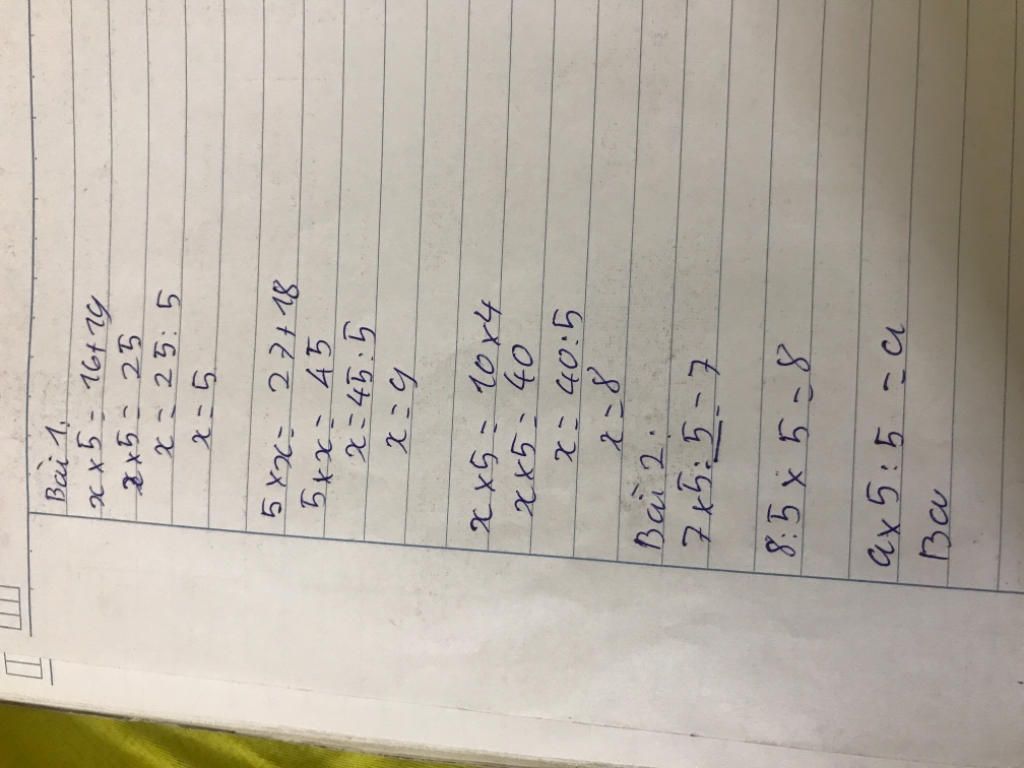 Bài 1.
x x 5 = 16+19
x x 5 = 25
x = 25 : 5
x = 5
5 x x = 27+18
5 x x = 45
x = 45 : 5
x = 9
x x 5 = 10 x 4
x x 5 = 40
x = 40 : 5
x = 8
Bài 2.
7 x 5 : 5 = 7
8 : 5 x 5 = 8
a x 5 : 5 = a
Ba